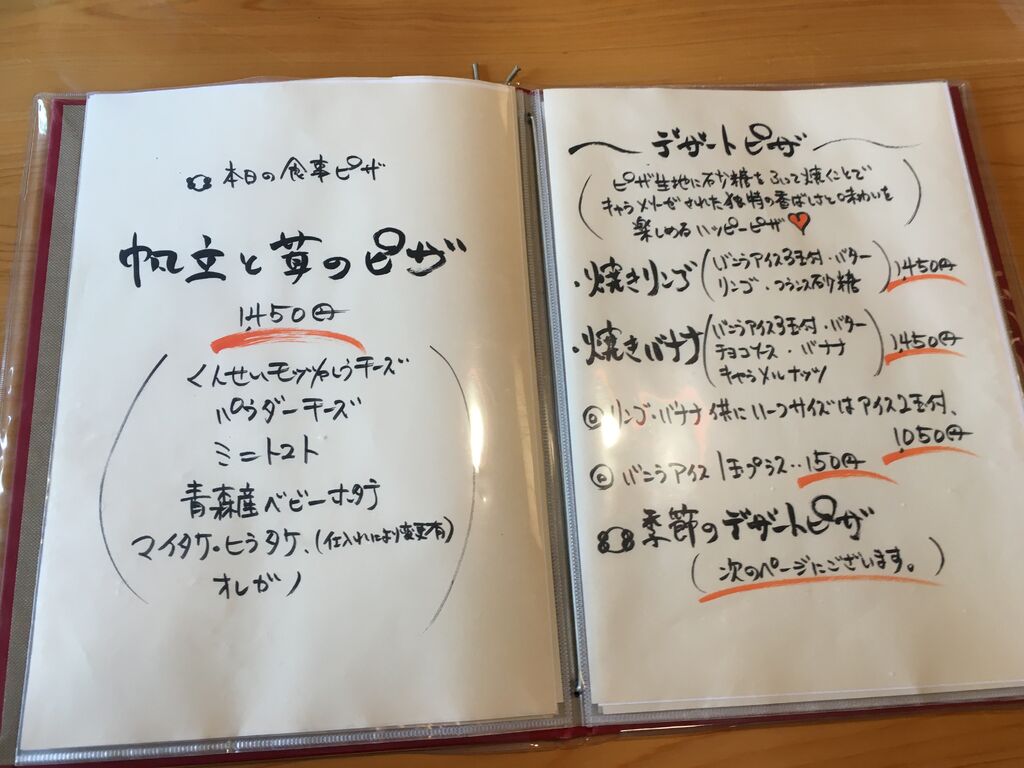 本日の食事ピザ
帆立と茸のピザ
1,450円
くんせいモッツァレラチーズ
パウダーチーズ
ミニトマト
青森産ベビーホタテ
マイタケ・ヒラタケ、(仕入れにより変更有)
オレガノ
デザートピザ
(ピザ生地に砂糖をふって焼くことで
キャラメリーゼされた独特の香ばしさと味わいを
楽しめるハッピーピザ♥)
・焼きリンゴ(バニラアイス3玉付・バター
リンゴ・フランス砂糖) 1,450円
・焼きバナナ(バニラアイス3玉付・バター
チョコソース・バナナ
キャラメルナッツ) 1,450円
◎リンゴ・バナナ供にハーフサイズはアイス2玉付、
1,050円
◎バニラアイス1玉プラス‥150円
季節のデザートピザ
(次のページにございます。)